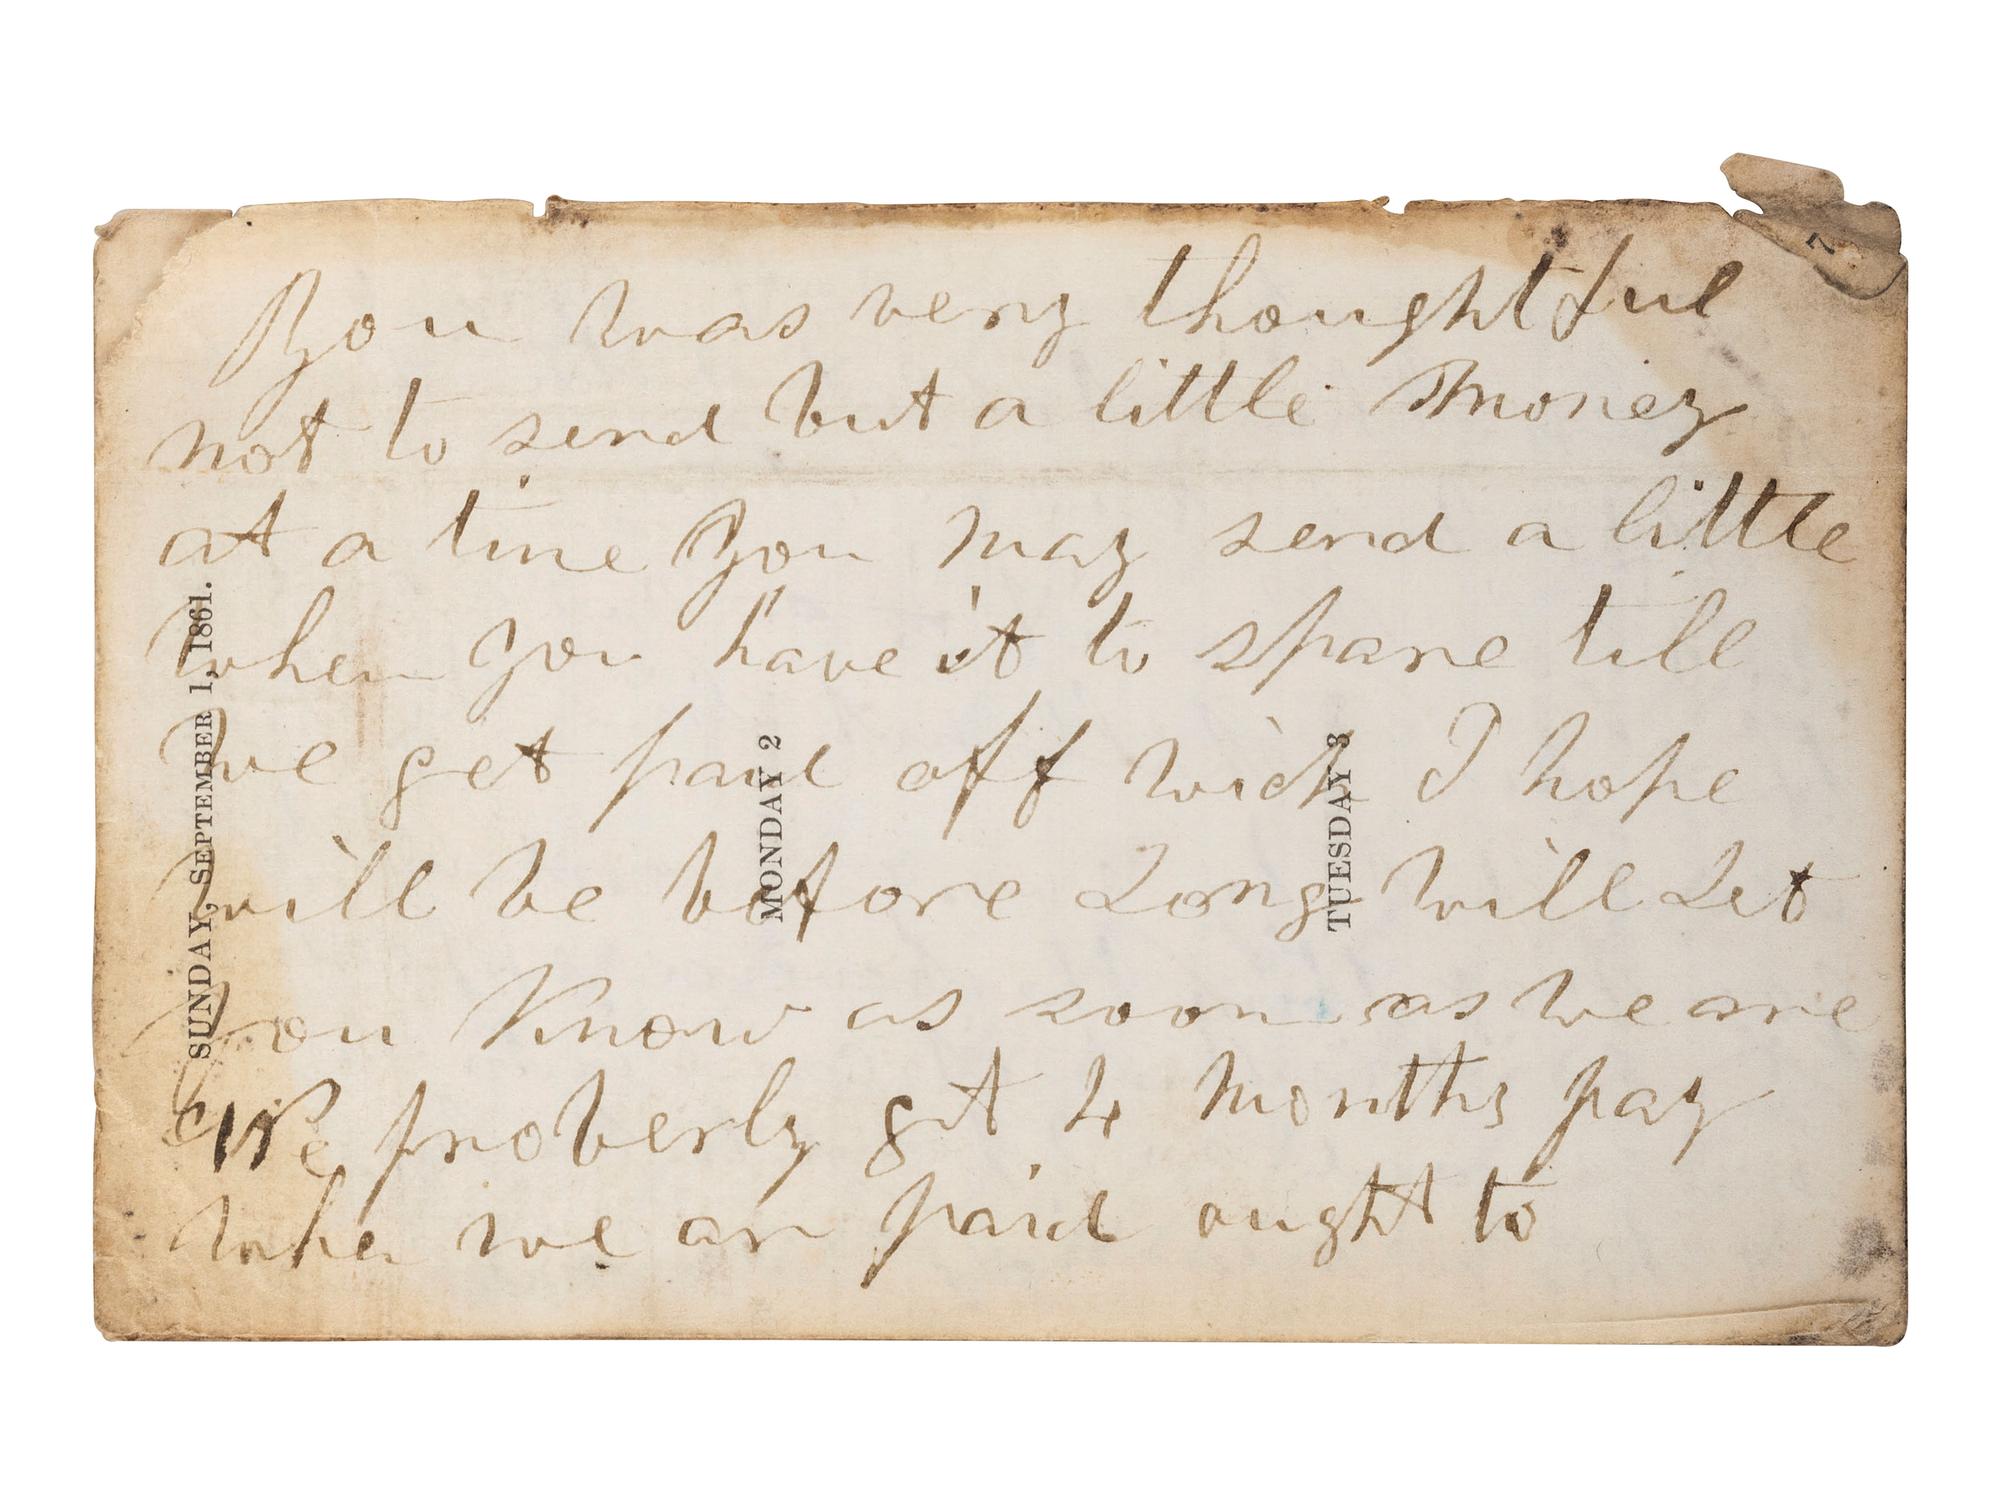 You was very thoughtful
not to send but a little Money
at a time You may send a little
when you have it to spare till
we get paid off wich I hope
will be before Long will Let
you Know as soon as we are
We proberly git 4 months pay
whe we ar paid ought to
SUNDAY, SEPTEMBER 1, 1861.
MONDAY 2
TUESDAY 3
7